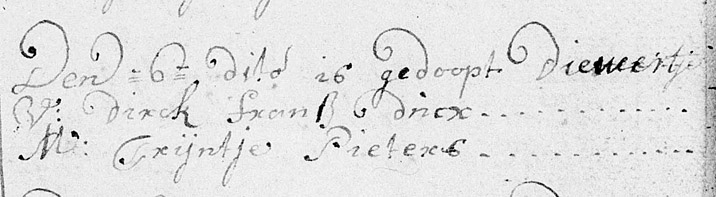 Den =6= dito is gedoopt Diewertje
V: Dirck franß
M: Trijntje Pieters